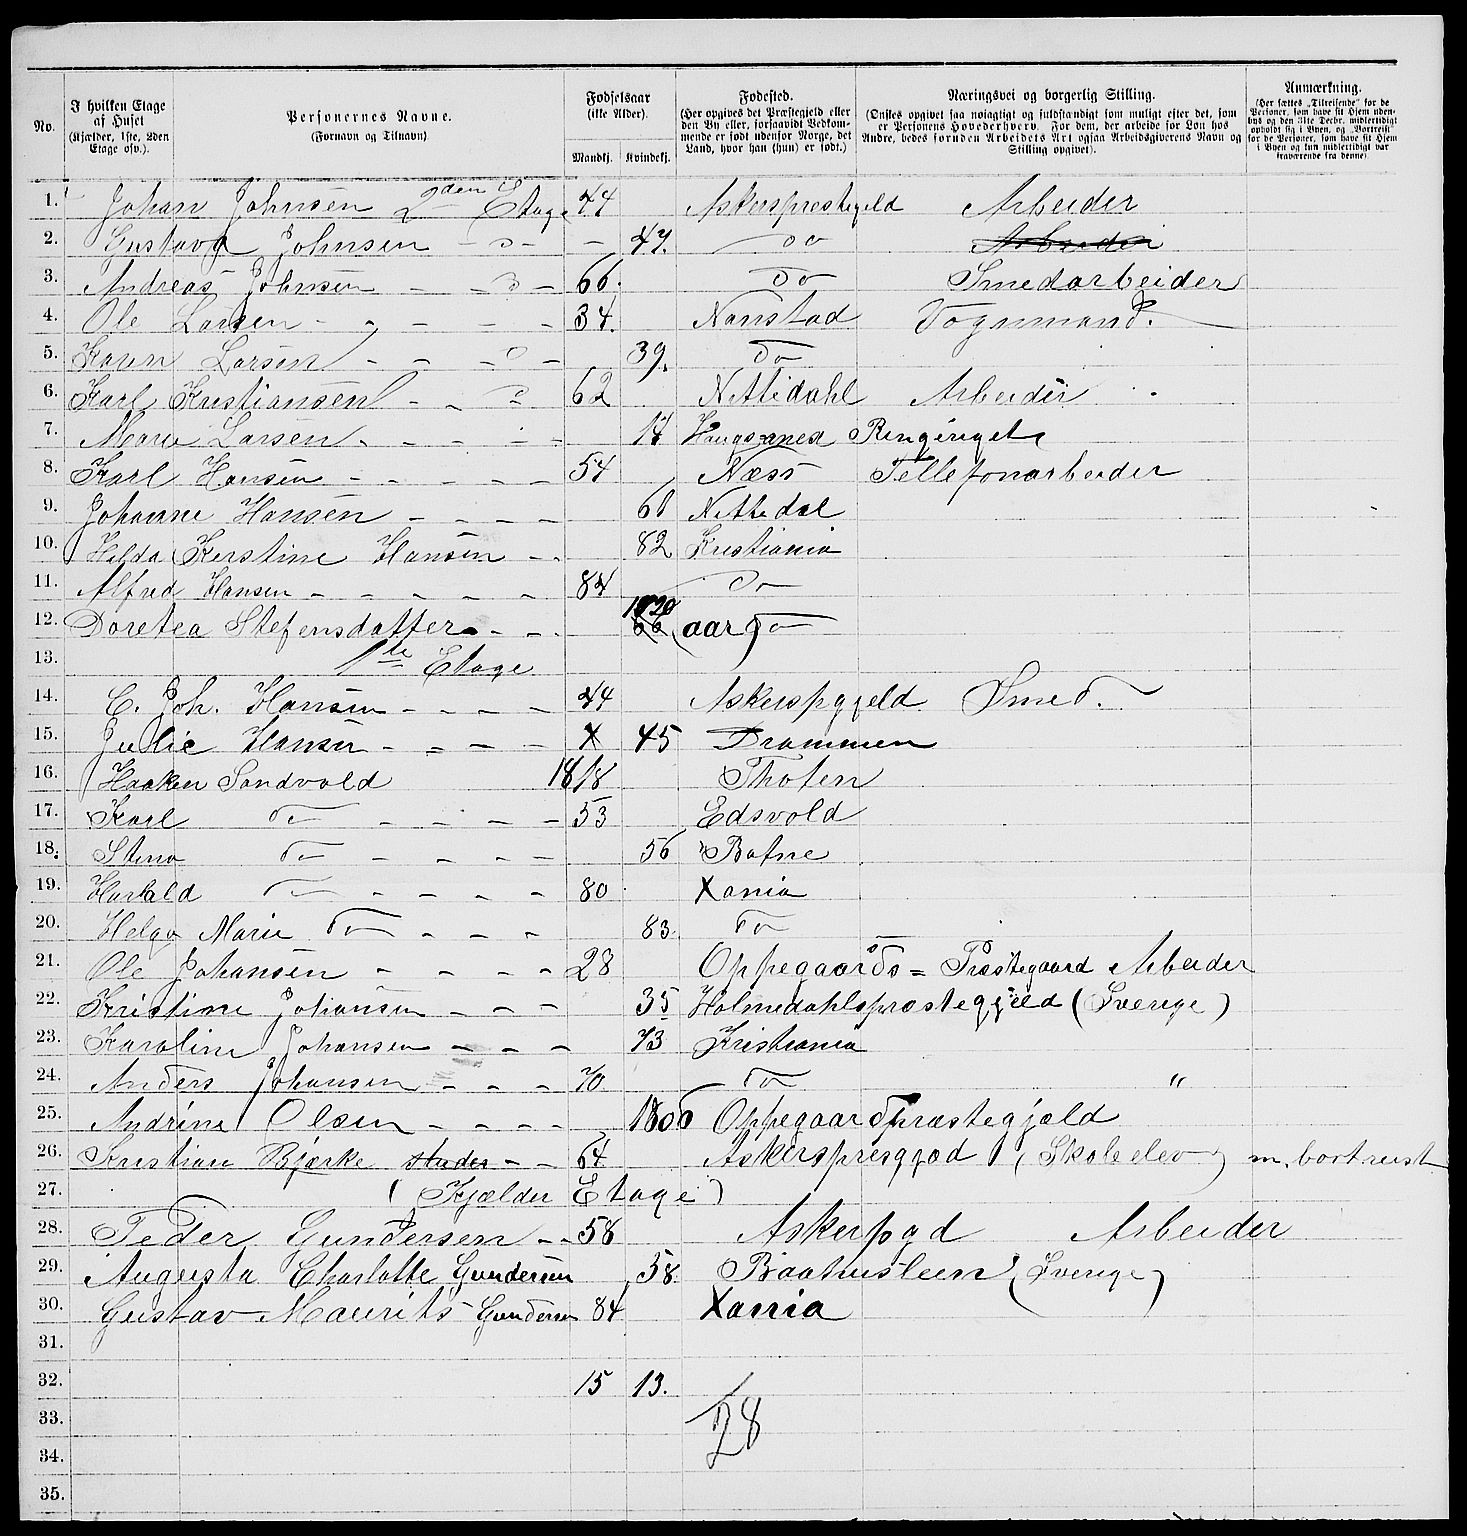 No. I hvilken Etage af Huset (Kjælder, 1ste, 2den Etage osv.). Personernes Navne. (Fornavn og Tilnavn). Fødselsaar (ikke Alder). Mandkj. Kvindekj. Fødested. (Her opgives det Præstegjeld eller den By eller, forsaavidt Vedkommende er født udenfor Norge, det Land, hvor han (hun) er født.) Næringsvei og borgerlig Stilling. (Ønskes opgivet saa nøiagtigt og fuldstændigt som muligt efter det, som er Personens Hovederhverv. For dem, der arbeide for Løn hos Andre, bedes foruden Arbeidets Art ogsaa Arbeidsgiverens Navn og Stilling opgivet). Anmærkning. (Her sættes „Tilreisende" for de Personer, som have sit Hjem udenbys og den 31te Decbr. midlertidigt opholdt sig i Byen, og „Bortreist" for de Personer, som have sit Hjem i Byen og kun midlertidigt var fraværende fra denne).
1. Johan Johnsen 2den Etage 44 Askersprestegeld Arbeider
2. Gustava Johnsen - - - 47. do Arbeider
3. Andreas Johnsen - - - 66. do Smedarbeider
4. Ole Larsen - - - - 34. Nanstad Vognmand.
5. Karen Larsen - - - 39. do
6. Karl Kristiansen - - 62 Nittedahl Arbeider
7. Marie Larsen - - - - 14 Haugsanex Ringeriget
8. Karl Hansen - - - - 54 Næss Tellefonarbeider
9. Johanne Hansen - - - - 61 Nittedal
10. Hilda Kerstine Hansen - - 82 Kristiania
11. Alfred Hansen - - - - - 84 do
12. Doretea Stefensdatter - - 1820 66 (aar) do
13. 1te Etage
14. C. Joh. Hansen - - - - 44 Askerspgjeld Smed.
15. Julie Hansen - - - - X 45 Drammen
16. Haaken Sandvold 1818 Thoten
17. Karl do - - - - 53 Edsvold
18. Stina do - - - - 56 Botne
19. Harrald do - - - - 80 Xania
20. Helga Marie do - - - 83. do
21. Ole Johansen - - - - 28 Oppegaards = Præstegaard Arbeider
22. Kristine Johansen - - - 35 Holmedahlsprostegjeld (Sverige)
23. Karoline Johansen - - - 73 Kristiania
24. Anders Johansen - - - 70. do "
25. Andrine Olsen - - - - 1806 Oppegaardpræstegjæld
26. Kristian Bjerke studer - - 64 Askerspresgjod (Skoleelev) m. bortreist
27. (Kjælder Etage)
28. Peder Gundersen - - 58 Askerpgd Arbeider
29. Augusta Charlotte Gundersen 58. Baahusleen (Sverige)
30. Gustav Maurits Gundersen 84 Xania
31.
32. 15 13.
33. 28
34.
35.